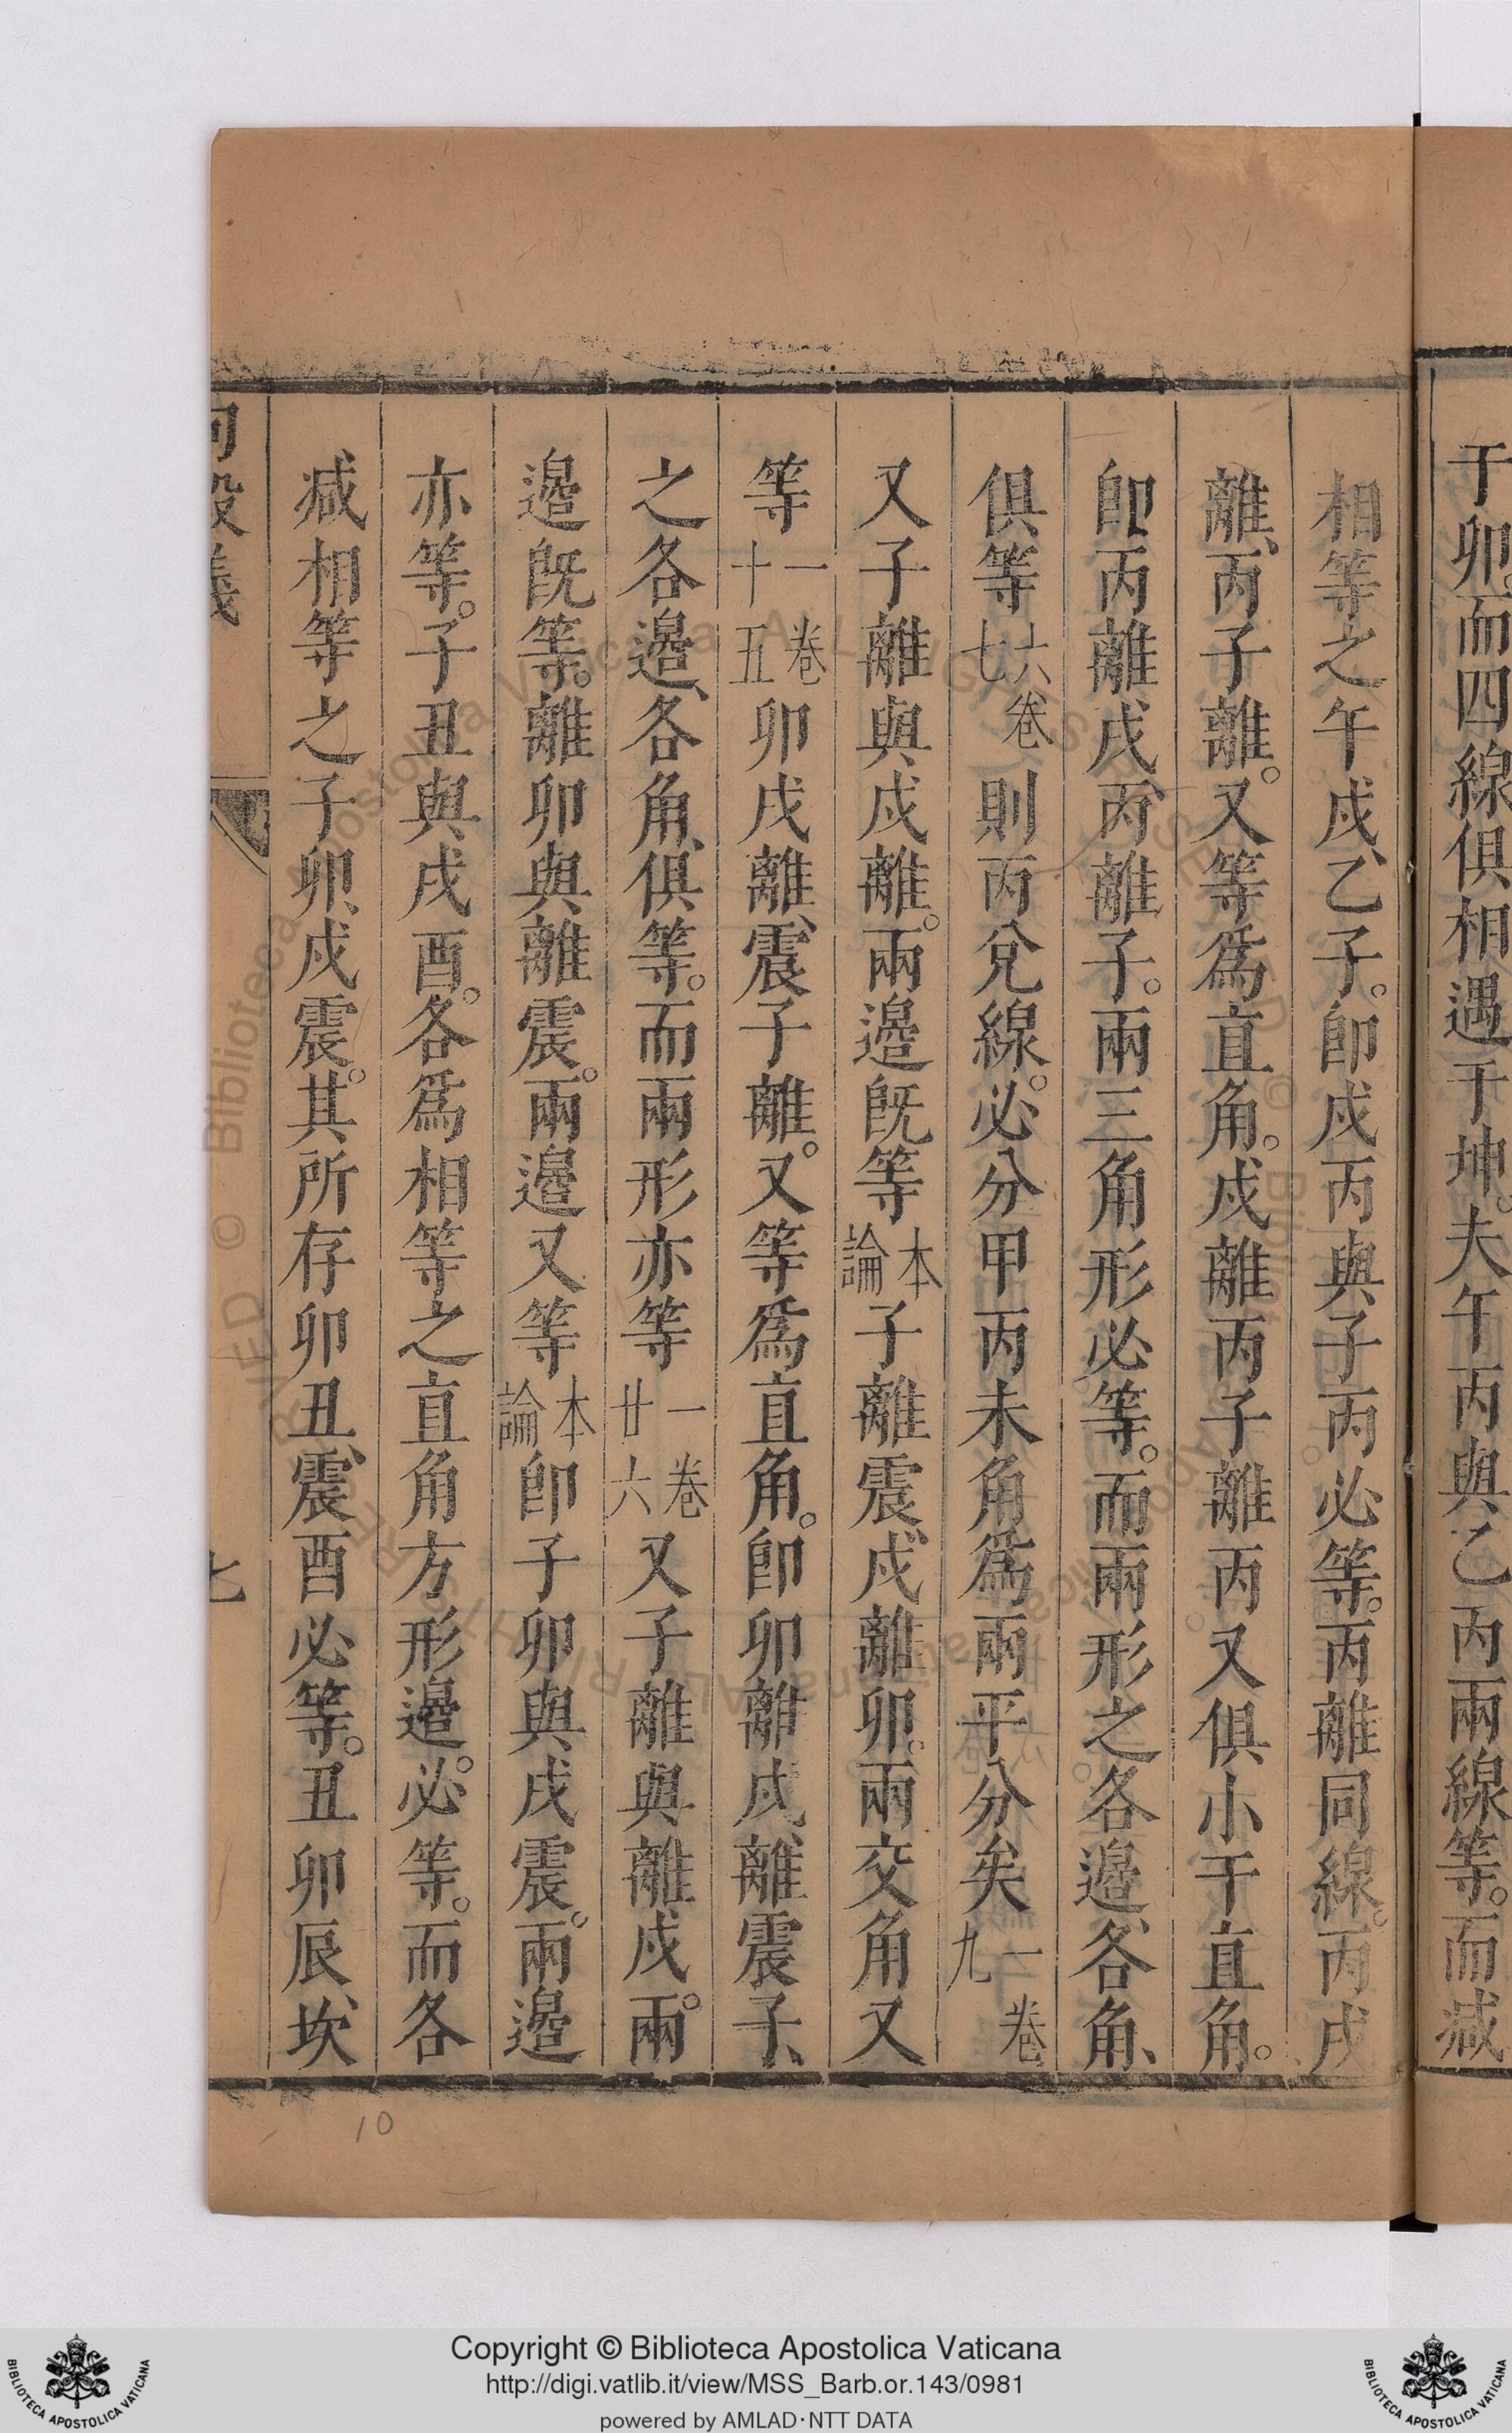 于卯。而四線俱相遇于坤。夫午丙與乙丙兩線等。而減
相等之午戌、乙子。卽戌丙與子丙。必等。丙離同線。丙戌
離、丙子離。又等爲直角。戌離丙子離丙又俱小于直角。
卽丙離戌、丙離子。兩三角形必等。而兩形之各邉、各角、
俱等六卷七則丙兌線。必分甲丙未角爲兩平分矣一卷九
又子離與戌離。兩邉旣等本論子離震、戌離卯。兩交角又
等一卷十五卯戌離、震子離。又等爲直角。卽卯離戌、離震子、
之各邉、各角、俱等。而兩形亦等一卷廿六又子離與離戌。兩
邉旣等。離卯與離震。兩邉又等本論卽子卯與戌震。兩邉
亦等。子丑與戌酉。各爲相等之直角方形邉。必等。而各
減相等之子卯、戌震。其所存卯丑、震酉必等。丑卯辰、坎
七
10
Copyright © Biblioteca Apostolica Vaticana
http://digi.vatlib.it/view/MSS_Barb.or.143/0981
powered by AMLAD·NTT DATA
BIBLIOTECA APOSTOLICA VATICANA
BIBLIOTECA APOSTOLICA VATICANA